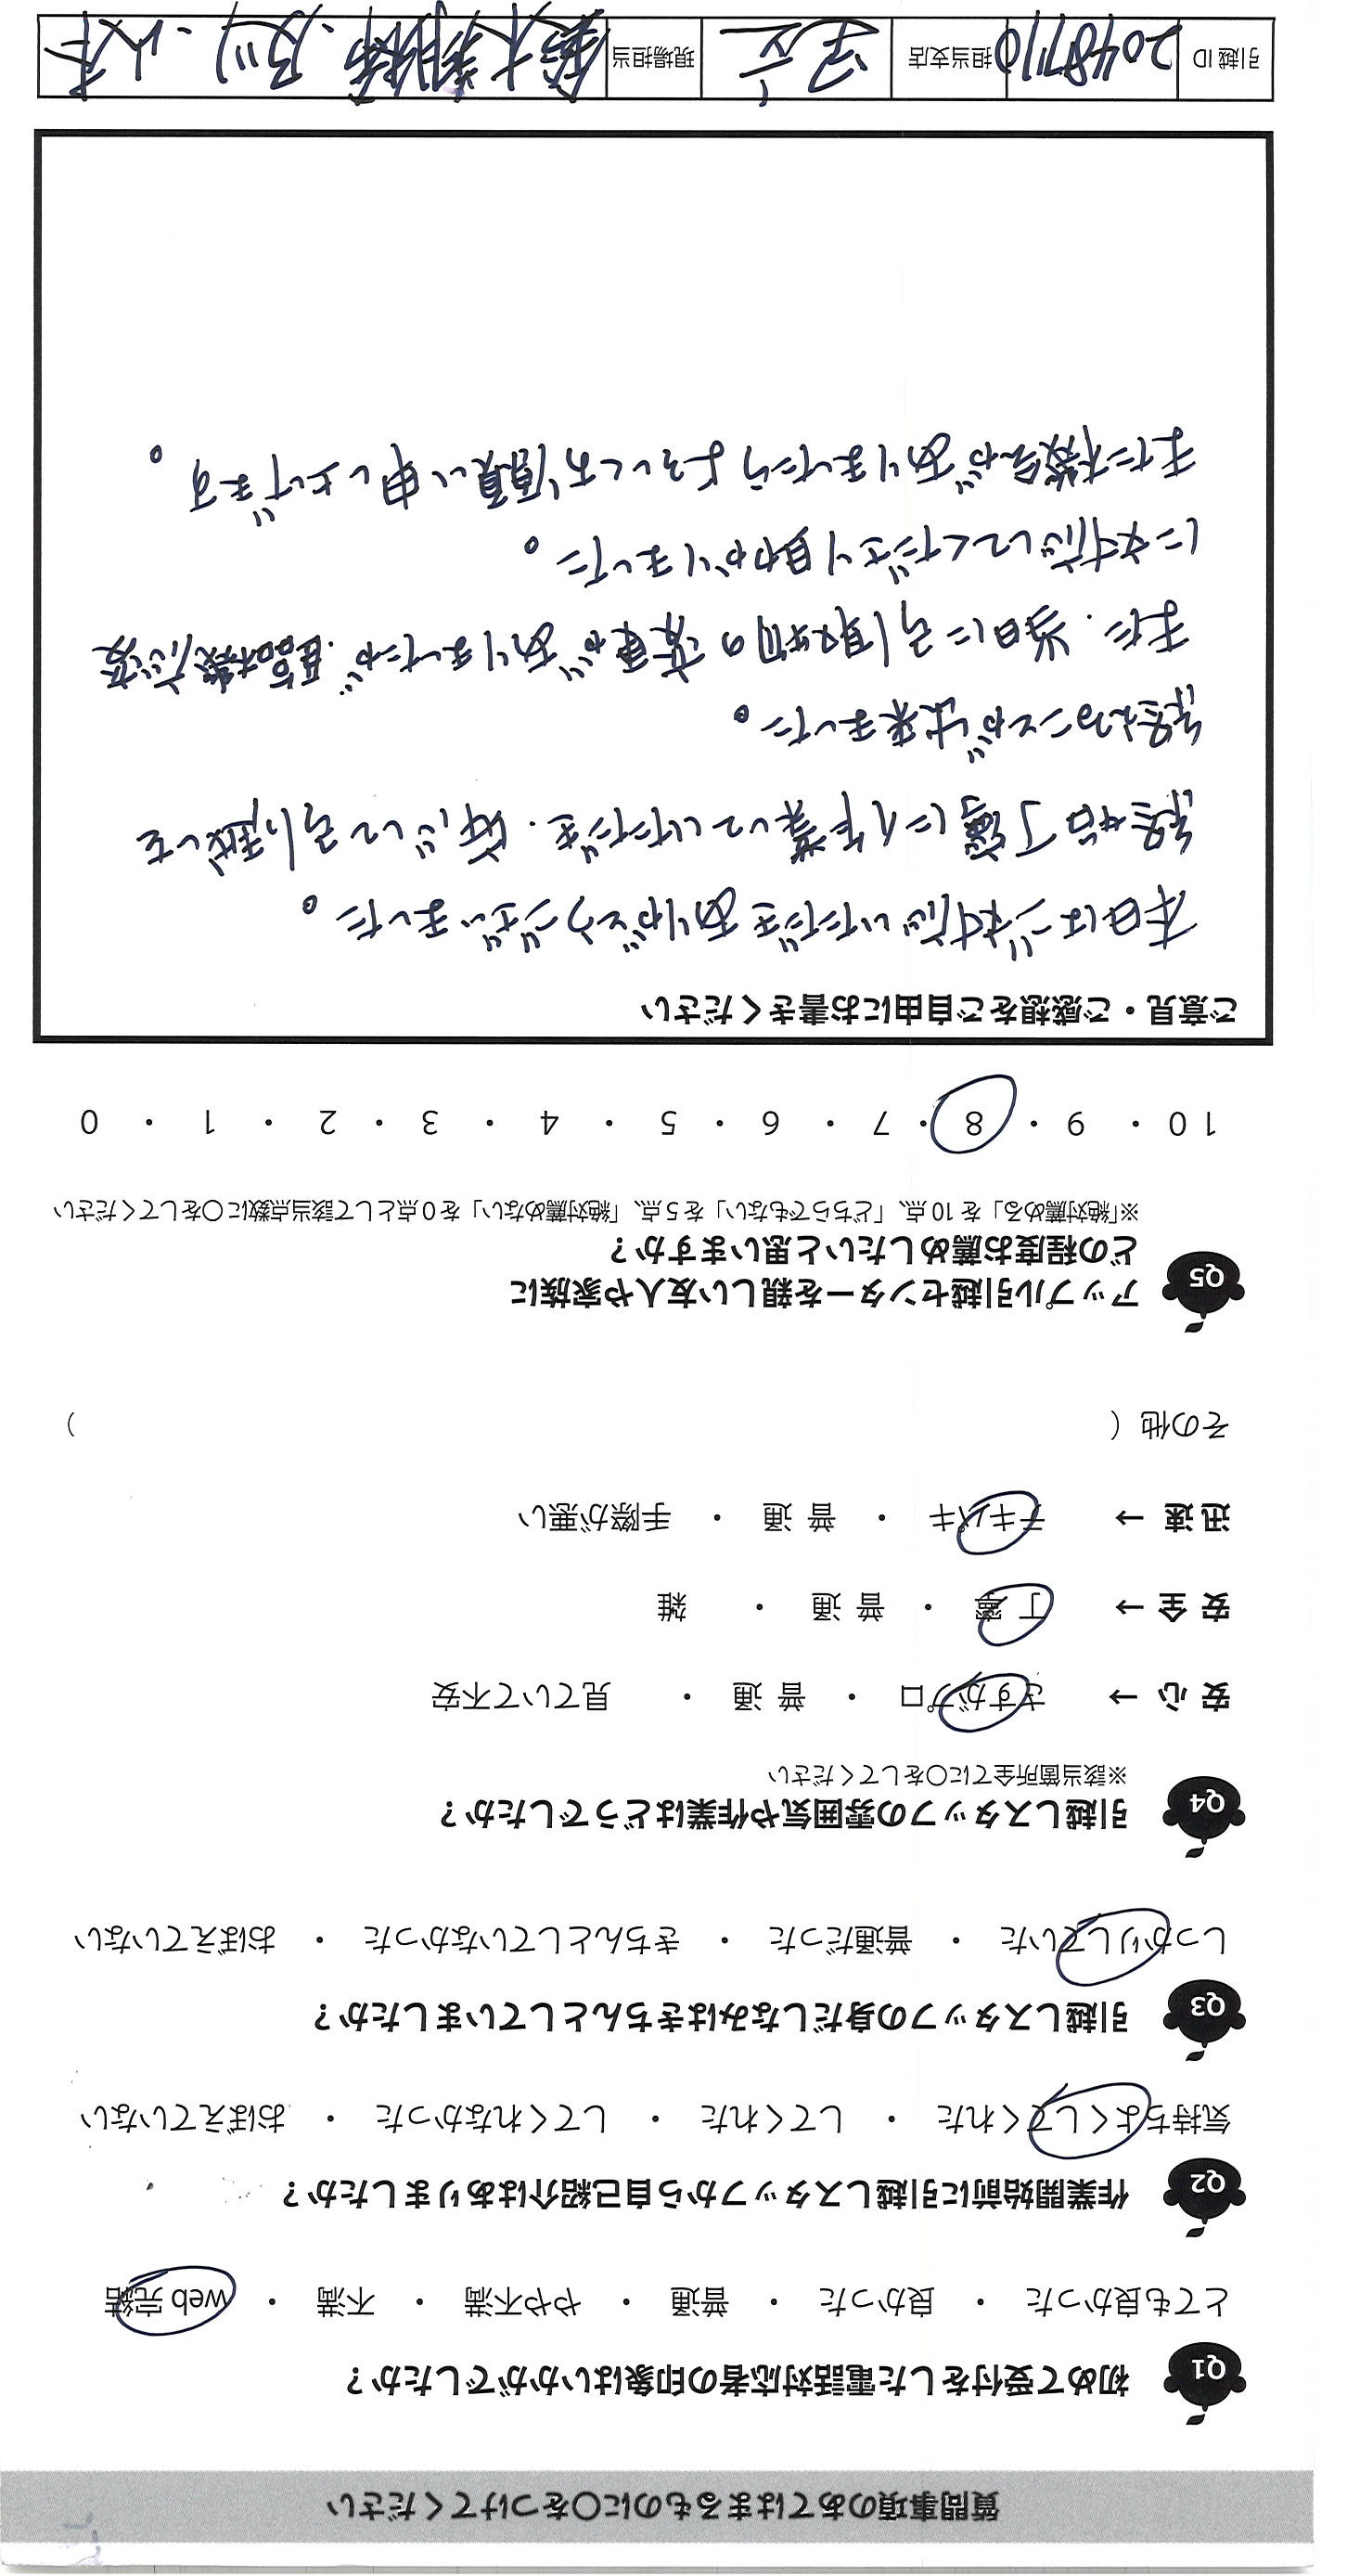 質問事項のあてはまるものに〇をつけてください
Q1 初めて受付をした電話対応者の印象はいかがでしたか？
とても良かった ・ 良かった ・ 普通 ・ やや不満 ・ 不満 ・ web 完結
Q2 作業開始前に引越しスタッフから自己紹介はありましたか？
気持ちよくしてくれた ・ してくれた ・ してくれなかった ・ おぼえていない
Q3 引越しスタッフの身だしなみはきちんとしていましたか？
しっかりしていた ・ 普通だった ・ きちんとしていなかった ・ おぼえていない
Q4 引越しスタッフの雰囲気や作業はどうでしたか？
※該当箇所全てに〇をしてください
安 心 → さすがプロ ・ 普 通 ・ 見ていて不安
安 全 → 丁 寧 ・ 普 通 ・ 雑
迅 速 → テキパキ ・ 普 通 ・ 手際が悪い
その他（ ）
Q5 アップル引越センターを親しい友人や家族に
どの程度お薦めしたいと思いますか？
※「絶対薦める」を 10 点、「どちらでもない」を 5 点、「絶対薦めない」を 0 点として該当点数に〇をしてください
10 ・ 9 ・ 8 ・ 7 ・ 6 ・ 5 ・ 4 ・ 3 ・ 2 ・ 1 ・ 0
ご意見・ご感想をご自由にお書きください
本日はご対応いただきありがとうございました。
終始丁寧に作業していただき、安心して引越しを
終えることが出来ました。
また、当日に引取物の変更がありましたが、臨機応変
に対応してくださり助かりました。
また機会がありましたらよろしくお願い申し上げます。
引越 ID 20487710 担当支店 足立 現場担当 鈴木